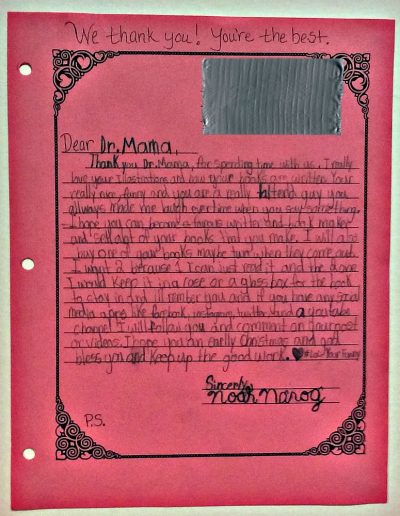 We thank you! You're the best.
Dear Dr. Mama,
Thank you Dr. Mama, for spending time with us. I really
love your Illustrations and how your books are written. Your
really nice, funny and you are a really guy you
always made me laugh every time when you say something.
I hope you can become a famous writter and book maker
and sell alot of your books that you make. I will also
buy one of your books maybe two when they come out.
I want 2 because 1 I can just read it and the one
I would keep it in a case or a glass box for the book
to stay in and ill rember you and if you have any social
media apps like facebook, instagram, twitter and a youtube
channel I will follow you and comment on your post
or videos. I hope you an early Christmas and god
bless you and keep up the good work. Your Funny
Sincerly,
Noah Narog
P.S.